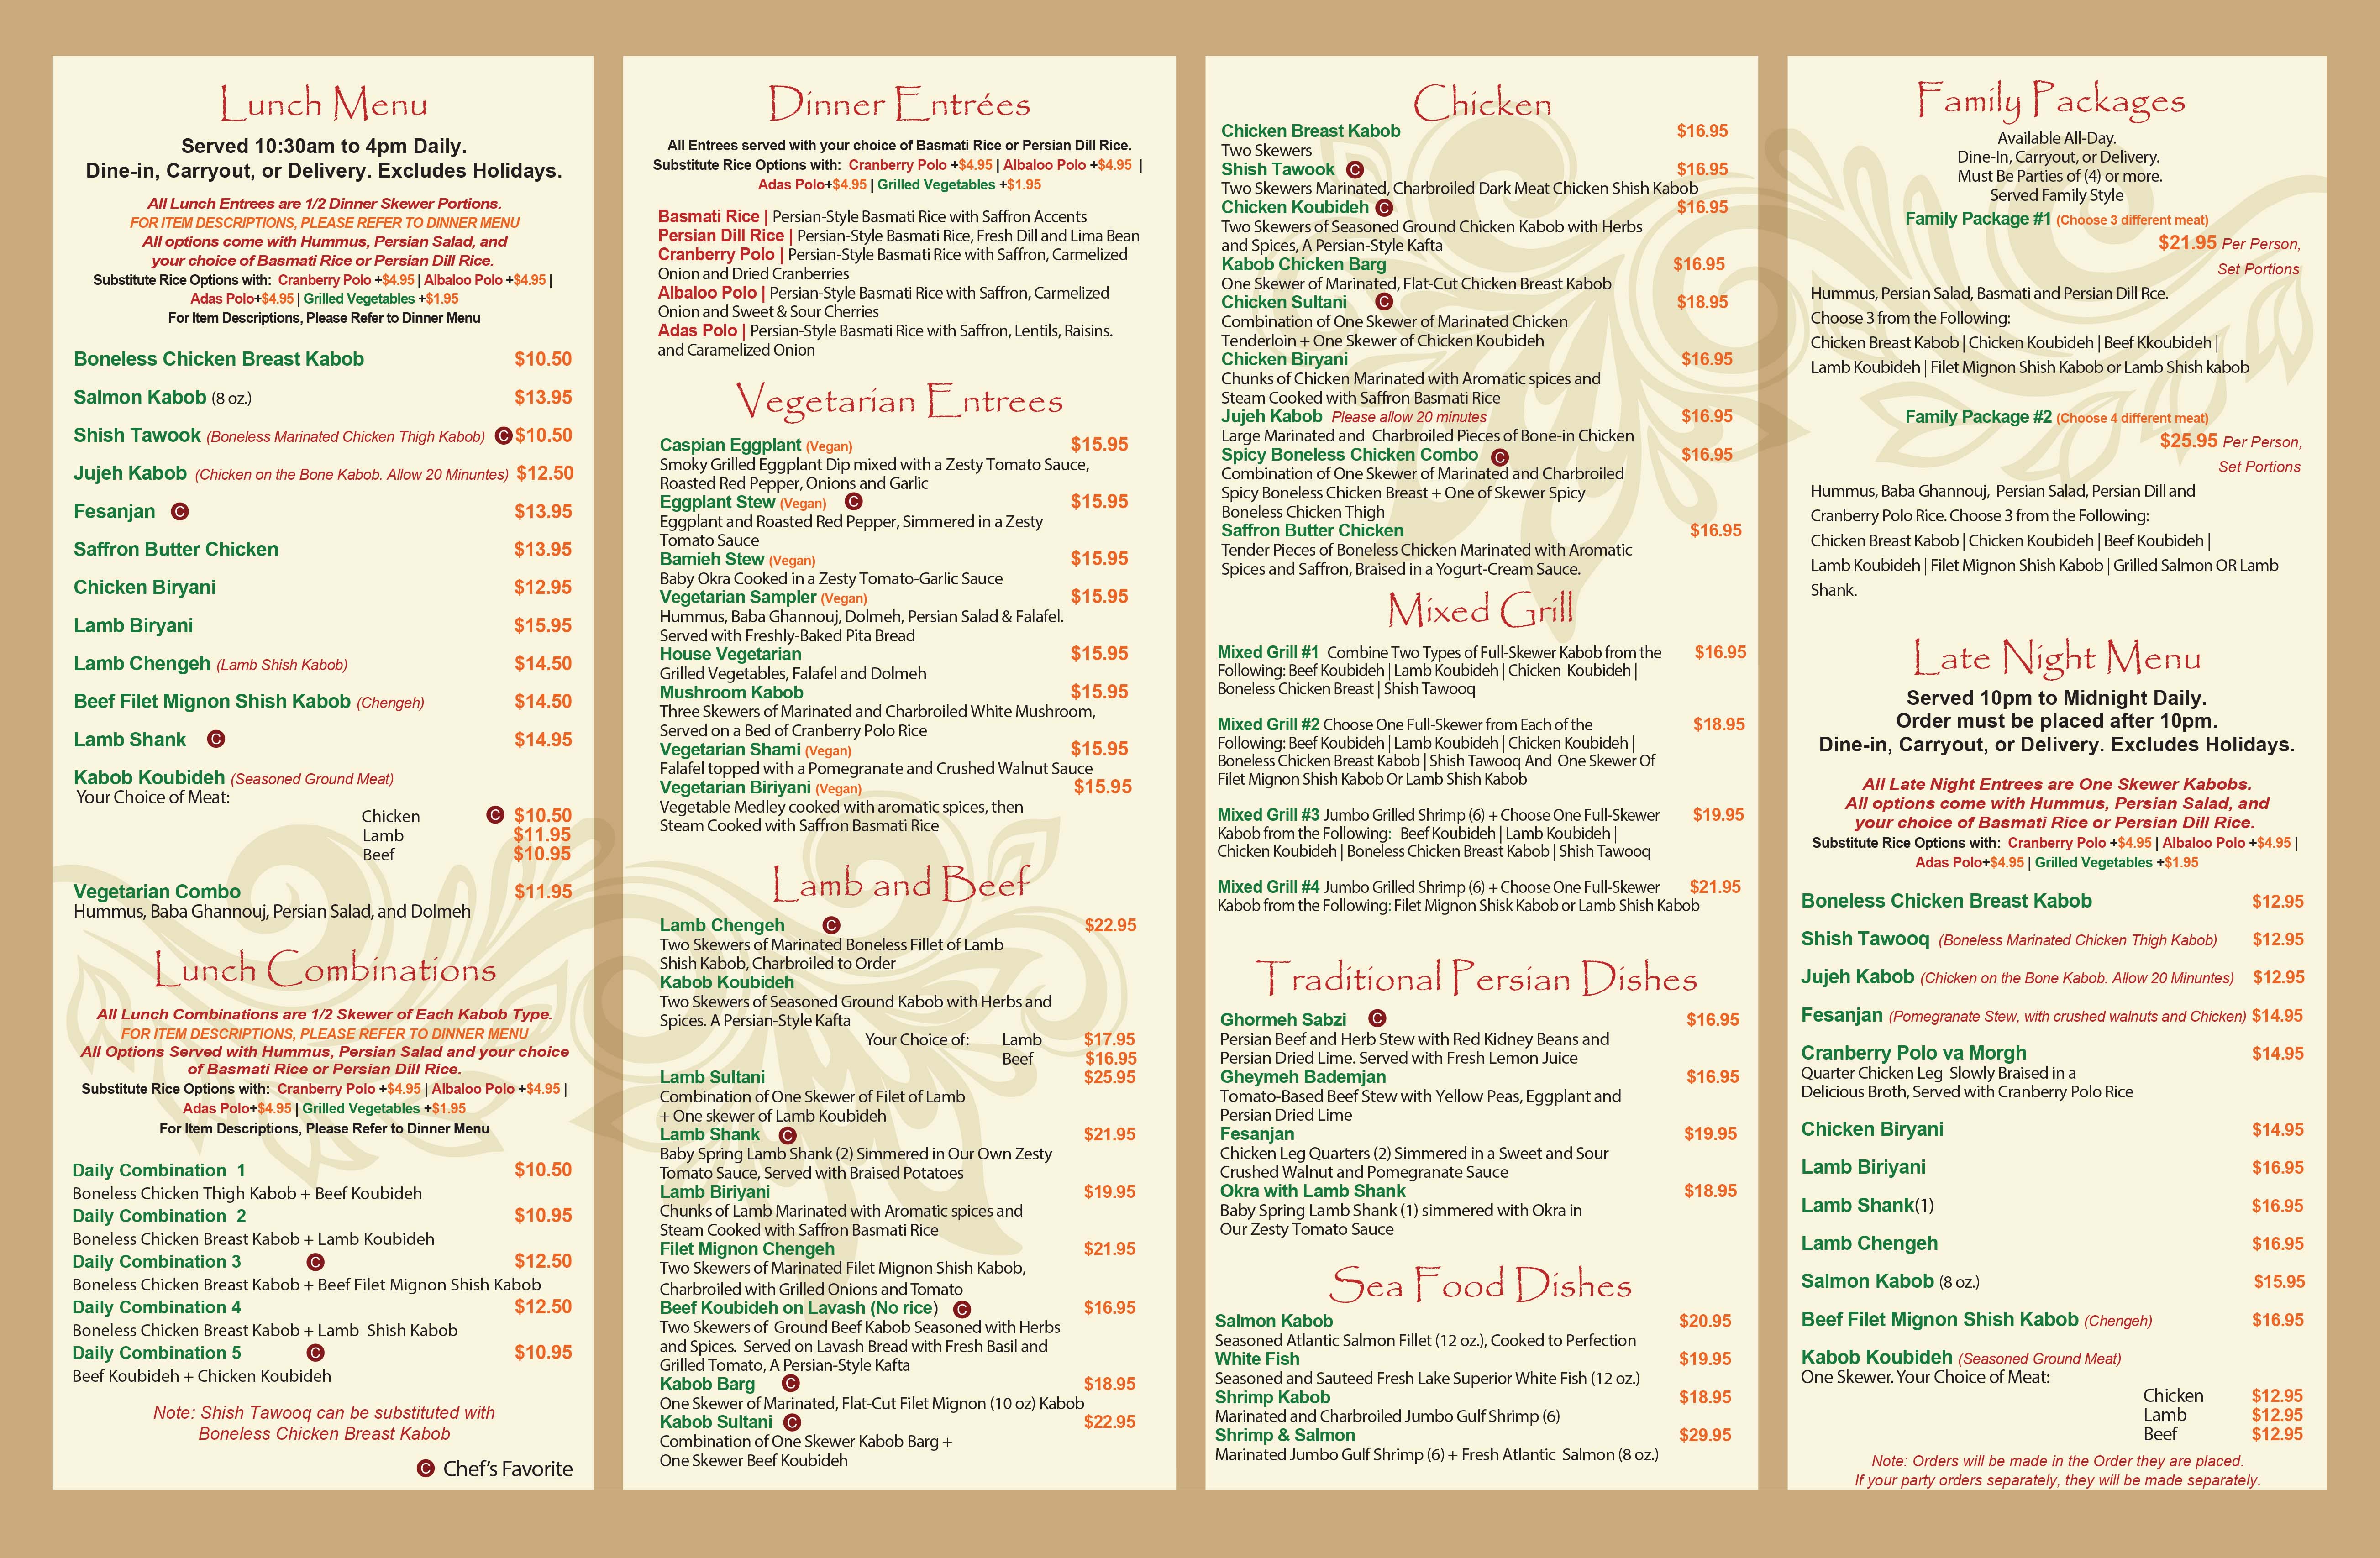 Lunch Menu
Served 10:30am to 4pm Daily.
Dine-in, Carryout, or Delivery. Excludes Holidays.
All Lunch Entrees are 1/2 Dinner Skewer Portions.
FOR ITEM DESCRIPTIONS, PLEASE REFER TO DINNER MENU
All options come with Hummus, Persian Salad, and
your choice of Basmati Rice or Persian Dill Rice.
Substitute Rice Options with: Cranberry Polo +$4.95 | Albaloo Polo +$4.95 |
Adas Polo+$4.95 | Grilled Vegetables +$1.95
For Item Descriptions, Please Refer to Dinner Menu
Boneless Chicken Breast Kabob $10.50
Salmon Kabob (8 oz.) $13.95
Shish Tawook (Boneless Marinated Chicken Thigh Kabob) C $10.50
Jujeh Kabob (Chicken on the Bone Kabob. Allow 20 Minuntes) $12.50
Fesanjan C $13.95
Saffron Butter Chicken $13.95
Chicken Biryani $12.95
Lamb Biryani $15.95
Lamb Chengeh (Lamb Shish Kabob) $14.50
Beef Filet Mignon Shish Kabob (Chengeh) $14.50
Lamb Shank C $14.95
Kabob Koubideh (Seasoned Ground Meat)
Your Choice of Meat:
Chicken C $10.50
Lamb $11.95
Beef $10.95
Vegetarian Combo $11.95
Hummus, Baba Ghannouj, Persian Salad, and Dolmeh
Lunch Combinations
All Lunch Combinations are 1/2 Skewer of Each Kabob Type.
FOR ITEM DESCRIPTIONS, PLEASE REFER TO DINNER MENU
All Options Served with Hummus, Persian Salad and your choice
of Basmati Rice or Persian Dill Rice.
Substitute Rice Options with: Cranberry Polo +$4.95 | Albaloo Polo +$4.95 |
Adas Polo+$4.95 | Grilled Vegetables +$1.95
For Item Descriptions, Please Refer to Dinner Menu
Daily Combination 1 $10.50
Boneless Chicken Thigh Kabob + Beef Koubideh
Daily Combination 2 $10.95
Boneless Chicken Breast Kabob + Lamb Koubideh
Daily Combination 3 C $12.50
Boneless Chicken Breast Kabob + Beef Filet Mignon Shish Kabob
Daily Combination 4 $12.50
Boneless Chicken Breast Kabob + Lamb Shish Kabob
Daily Combination 5 C $10.95
Beef Koubideh + Chicken Koubideh
Note: Shish Tawooq can be substituted with
Boneless Chicken Breast Kabob
C Chef's Favorite
Dinner Entrées
All Entrees served with your choice of Basmati Rice or Persian Dill Rice.
Substitute Rice Options with: Cranberry Polo +$4.95 | Albaloo Polo +$4.95 |
Adas Polo+$4.95 | Grilled Vegetables +$1.95
Basmati Rice | Persian-Style Basmati Rice with Saffron Accents
Persian Dill Rice | Persian-Style Basmati Rice, Fresh Dill and Lima Bean
Cranberry Polo | Persian-Style Basmati Rice with Saffron, Carmelized
Onion and Dried Cranberries
Albaloo Polo | Persian-Style Basmati Rice with Saffron, Carmelized
Onion and Sweet & Sour Cherries
Adas Polo | Persian-Style Basmati Rice with Saffron, Lentils, Raisins.
and Caramelized Onion
Vegetarian Entrees
Caspian Eggplant (Vegan) $15.95
Smoky Grilled Eggplant Dip mixed with a Zesty Tomato Sauce,
Roasted Red Pepper, Onions and Garlic
Eggplant Stew (Vegan) C $15.95
Eggplant and Roasted Red Pepper, Simmered in a Zesty
Tomato Sauce
Bamieh Stew (Vegan) $15.95
Baby Okra Cooked in a Zesty Tomato-Garlic Sauce
Vegetarian Sampler (Vegan) $15.95
Hummus, Baba Ghannouj, Dolmeh, Persian Salad & Falafel.
Served with Freshly-Baked Pita Bread
House Vegetarian $15.95
Grilled Vegetables, Falafel and Dolmeh
Mushroom Kabob $15.95
Three Skewers of Marinated and Charbroiled White Mushroom,
Served on a Bed of Cranberry Polo Rice
Vegetarian Shami (Vegan) $15.95
Falafel topped with a Pomegranate and Crushed Walnut Sauce
Vegetarian Biriyani (Vegan) $15.95
Vegetable Medley cooked with aromatic spices, then
Steam Cooked with Saffron Basmati Rice
Lamb and Beef
Lamb Chengeh C $22.95
Two Skewers of Marinated Boneless Fillet of Lamb
Shish Kabob, Charbroiled to Order
Kabob Koubideh
Two Skewers of Seasoned Ground Kabob with Herbs and
Spices. A Persian-Style Kafta
Your Choice of: Lamb $17.95
Beef $16.95
Lamb Sultani $25.95
Combination of One Skewer of Filet of Lamb
+ One skewer of Lamb Koubideh
Lamb Shank C $21.95
Baby Spring Lamb Shank (2) Simmered in Our Own Zesty
Tomato Sauce, Served with Braised Potatoes
Lamb Biriyani $19.95
Chunks of Lamb Marinated with Aromatic spices and
Steam Cooked with Saffron Basmati Rice
Filet Mignon Chengeh $21.95
Two Skewers of Marinated Filet Mignon Shish Kabob,
Charbroiled with Grilled Onions and Tomato
Beef Koubideh on Lavash (No rice) C $16.95
Two Skewers of Ground Beef Kabob Seasoned with Herbs
and Spices. Served on Lavash Bread with Fresh Basil and
Grilled Tomato, A Persian-Style Kafta
Kabob Barg C $18.95
One Skewer of Marinated, Flat-Cut Filet Mignon (10 oz) Kabob
Kabob Sultani C $22.95
Combination of One Skewer Kabob Barg +
One Skewer Beef Koubideh
Chicken
Chicken Breast Kabob $16.95
Two Skewers
Shish Tawook C $16.95
Two Skewers Marinated, Charbroiled Dark Meat Chicken Shish Kabob
Chicken Koubideh C $16.95
Two Skewers of Seasoned Ground Chicken Kabob with Herbs
and Spices, A Persian-Style Kafta
Kabob Chicken Barg $16.95
One Skewer of Marinated, Flat-Cut Chicken Breast Kabob
Chicken Sultani C $18.95
Combination of One Skewer of Marinated Chicken
Tenderloin + One Skewer of Chicken Koubideh
Chicken Biryani $16.95
Chunks of Chicken Marinated with Aromatic spices and
Steam Cooked with Saffron Basmati Rice
Jujeh Kabob Please allow 20 minutes $16.95
Large Marinated and Charbroiled Pieces of Bone-in Chicken
Spicy Boneless Chicken Combo C $16.95
Combination of One Skewer of Marinated and Charbroiled
Spicy Boneless Chicken Breast + One of Skewer Spicy
Boneless Chicken Thigh
Saffron Butter Chicken $16.95
Tender Pieces of Boneless Chicken Marinated with Aromatic
Spices and Saffron, Braised in a Yogurt-Cream Sauce.
Mixed Grill
Mixed Grill #1 Combine Two Types of Full-Skewer Kabob from the $16.95
Following: Beef Koubideh | Lamb Koubideh | Chicken Koubideh |
Boneless Chicken Breast | Shish Tawooq
Mixed Grill #2 Choose One Full-Skewer from Each of the $18.95
Following: Beef Koubideh | Lamb Koubideh | Chicken Koubideh |
Boneless Chicken Breast Kabob | Shish Tawooq And One Skewer Of
Filet Mignon Shish Kabob Or Lamb Shish Kabob
Mixed Grill #3 Jumbo Grilled Shrimp (6) + Choose One Full-Skewer $19.95
Kabob from the Following: Beef Koubideh | Lamb Koubideh |
Chicken Koubideh | Boneless Chicken Breast Kabob | Shish Tawooq
Mixed Grill #4 Jumbo Grilled Shrimp (6) + Choose One Full-Skewer $21.95
Kabob from the Following: Filet Mignon Shisk Kabob or Lamb Shish Kabob
Traditional Persian Dishes
Ghormeh Sabzi C $16.95
Persian Beef and Herb Stew with Red Kidney Beans and
Persian Dried Lime. Served with Fresh Lemon Juice
Gheymeh Bademjan $16.95
Tomato-Based Beef Stew with Yellow Peas, Eggplant and
Persian Dried Lime
Fesanjan $19.95
Chicken Leg Quarters (2) Simmered in a Sweet and Sour
Crushed Walnut and Pomegranate Sauce
Okra with Lamb Shank $18.95
Baby Spring Lamb Shank (1) simmered with Okra in
Our Zesty Tomato Sauce
Sea Food Dishes
Salmon Kabob $20.95
Seasoned Atlantic Salmon Fillet (12 oz.), Cooked to Perfection
White Fish $19.95
Seasoned and Sauteed Fresh Lake Superior White Fish (12 oz.)
Shrimp Kabob $18.95
Marinated and Charbroiled Jumbo Gulf Shrimp (6)
Shrimp & Salmon $29.95
Marinated Jumbo Gulf Shrimp (6) + Fresh Atlantic Salmon (8 oz.)
Family Packages
Available All-Day.
Dine-In, Carryout, or Delivery.
Must Be Parties of (4) or more.
Served Family Style
Family Package #1 (Choose 3 different meat)
$21.95 Per Person,
Set Portions
Hummus, Persian Salad, Basmati and Persian Dill Rce.
Choose 3 from the Following:
Chicken Breast Kabob | Chicken Koubideh | Beef Kkoubideh |
Lamb Koubideh | Filet Mignon Shish Kabob or Lamb Shish kabob
Family Package #2 (Choose 4 different meat)
$25.95 Per Person,
Set Portions
Hummus, Baba Ghannouj, Persian Salad, Persian Dill and
Cranberry Polo Rice. Choose 3 from the Following:
Chicken Breast Kabob | Chicken Koubideh | Beef Koubideh |
Lamb Koubideh | Filet Mignon Shish Kabob | Grilled Salmon OR Lamb
Shank.
Late Night Menu
Served 10pm to Midnight Daily.
Order must be placed after 10pm.
Dine-in, Carryout, or Delivery. Excludes Holidays.
All Late Night Entrees are One Skewer Kabobs.
All options come with Hummus, Persian Salad, and
your choice of Basmati Rice or Persian Dill Rice.
Substitute Rice Options with: Cranberry Polo +$4.95 | Albaloo Polo +$4.95 |
Adas Polo+$4.95 | Grilled Vegetables +$1.95
Boneless Chicken Breast Kabob $12.95
Shish Tawooq (Boneless Marinated Chicken Thigh Kabob) $12.95
Jujeh Kabob (Chicken on the Bone Kabob. Allow 20 Minuntes) $12.95
Fesanjan (Pomegranate Stew, with crushed walnuts and Chicken) $14.95
Cranberry Polo va Morgh $14.95
Quarter Chicken Leg Slowly Braised in a
Delicious Broth, Served with Cranberry Polo Rice
Chicken Biryani $14.95
Lamb Biriyani $16.95
Lamb Shank(1) $16.95
Lamb Chengeh $16.95
Salmon Kabob (8 oz.) $15.95
Beef Filet Mignon Shish Kabob (Chengeh) $16.95
Kabob Koubideh (Seasoned Ground Meat)
One Skewer. Your Choice of Meat:
Chicken $12.95
Lamb $12.95
Beef $12.95
Note: Orders will be made in the Order they are placed.
If your party orders separately, they will be made separately.